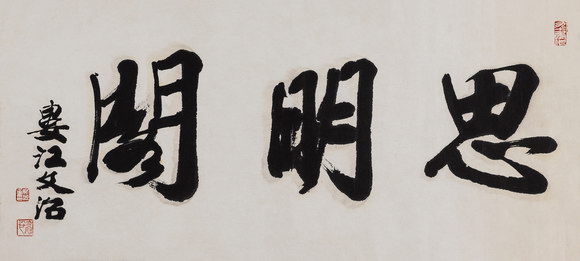 思明閣
婁江文治